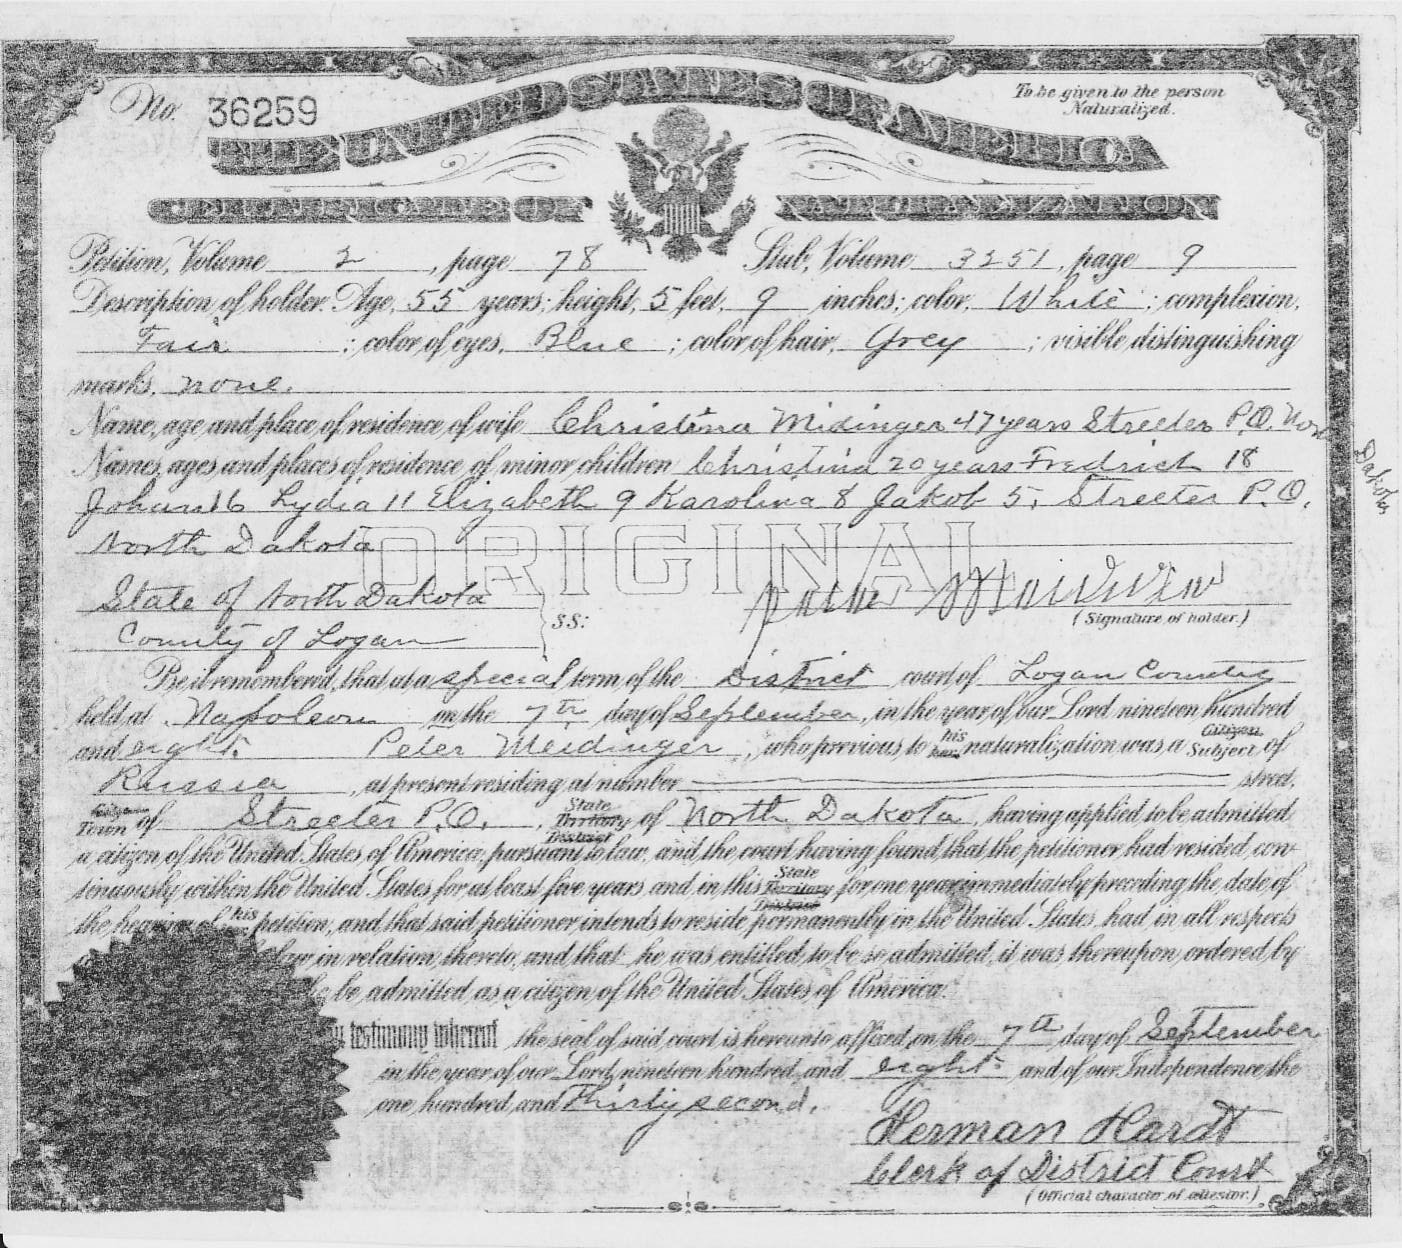 No. 36259
To be given to the person
Naturalized.
THE UNITED STATES OF AMERICA
CERTIFICATE OF NATURALIZATION
Petition, Volume 2, page 78 Stub, Volume 3251, page 9
Description of holder: Age, 55 years; height, 5 feet, 9 inches; color, White; complexion,
Fair; color of eyes, Blue; color of hair, Grey; visible distinguishing
marks, none.
Name, age and place of residence of wife Christina Midinger 47 years Streeter P.O. Nor
Dakota
Names, ages and places of residence of minor children Christina 20 years Fredrich 18
Johan 16 Lydia 11 Elizabeth 9 Karolina 8 Jakob 5, Streeter P.O.
North Dakota
ORIGINAL
State of North Dakota
County of Logan
ss:
(Signature of holder.)
Be it remembered, that at a special term of the District court of Logan County
held at Napoleon on the 7th day of September, in the year of our Lord nineteen hundred
and eight. Peter Meidinger, who previous to his her naturalization was a Citizen Subject of
Russia, at present residing at number street,
City Town of Streeter P.O., State Territory District of North Dakota, having applied to be admitted
a citizen of the United States of America, pursuant to law, and the court having found that the petitioner had resided con-
tinuously within the United States for at least five years and in this State Territory District for one year immediately preceding the date of
the hearing of his petition, and that said petitioner intends to reside permanently in the United States, had in all respects
law in relation thereto, and that he was entitled to be so admitted, it was thereupon ordered by
he be admitted as a citizen of the United States of America.
testimony whereof the seal of said court is hereunto affixed on the 7th day of September
in the year of our Lord nineteen hundred and eight. and of our Independence the
one hundred and Thirty second.
Herman Hardt
Clerk of District Court
(Official character of attestor.)